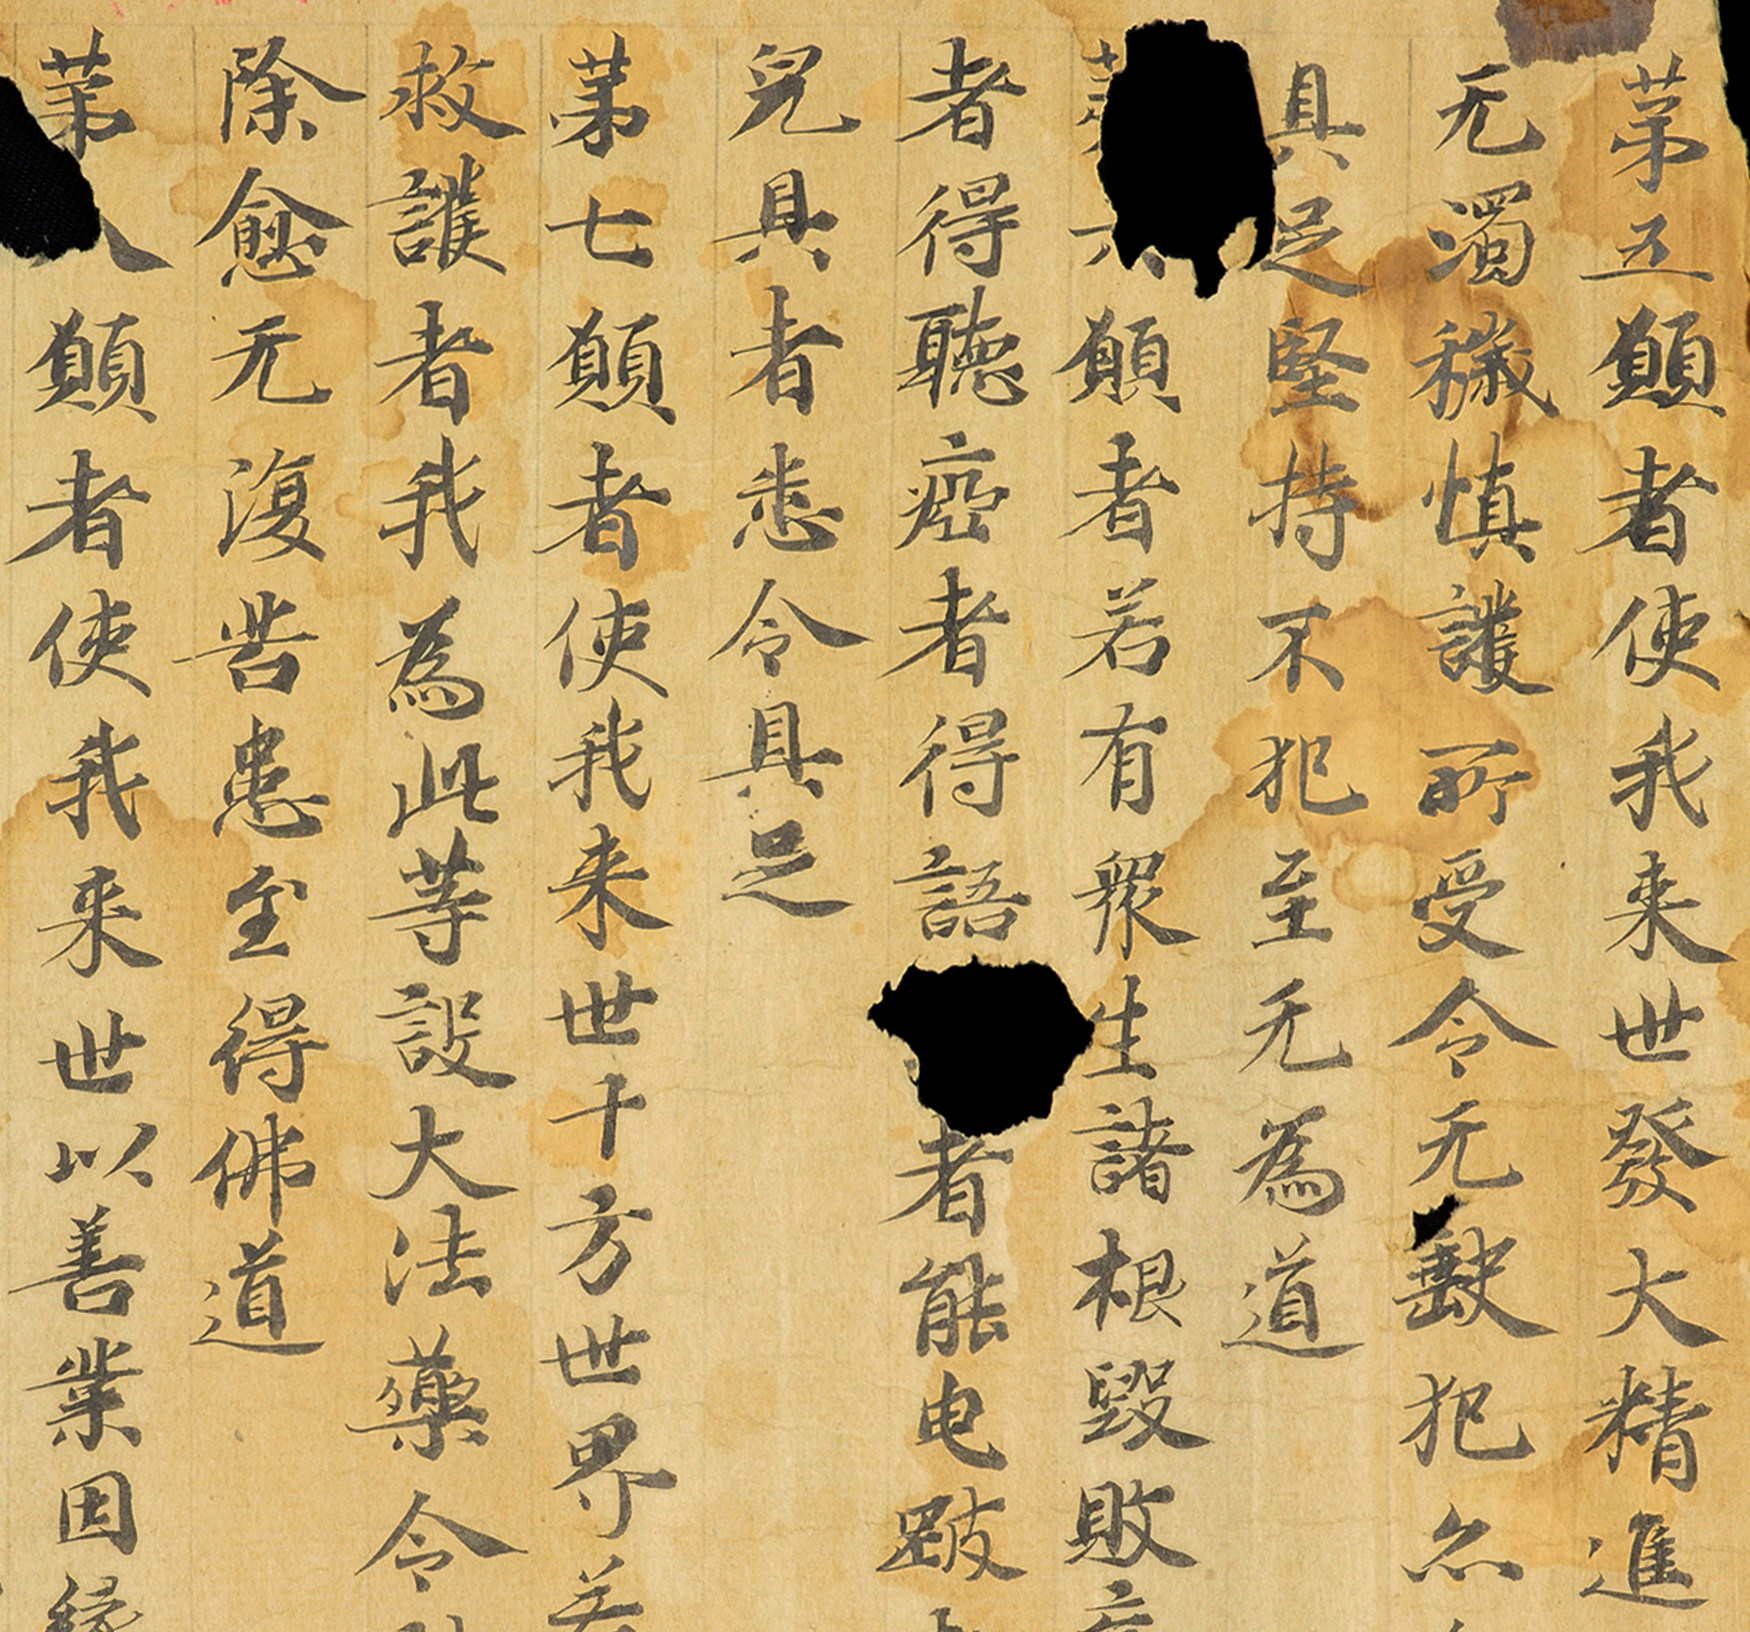 苐五願者使我来世發大精進
无濁穢慎護所受令无缺犯亦
具足堅持不犯至无為道
六願者若有衆生諸根毀敗
者得聽瘂者得語者能申跛
皃具者悉令具足
苐七願者使我来世十方世界若
救護者我為此等設大法藥令
除愈无復苦患至得佛道
苐八願者使我来世以善業因緣